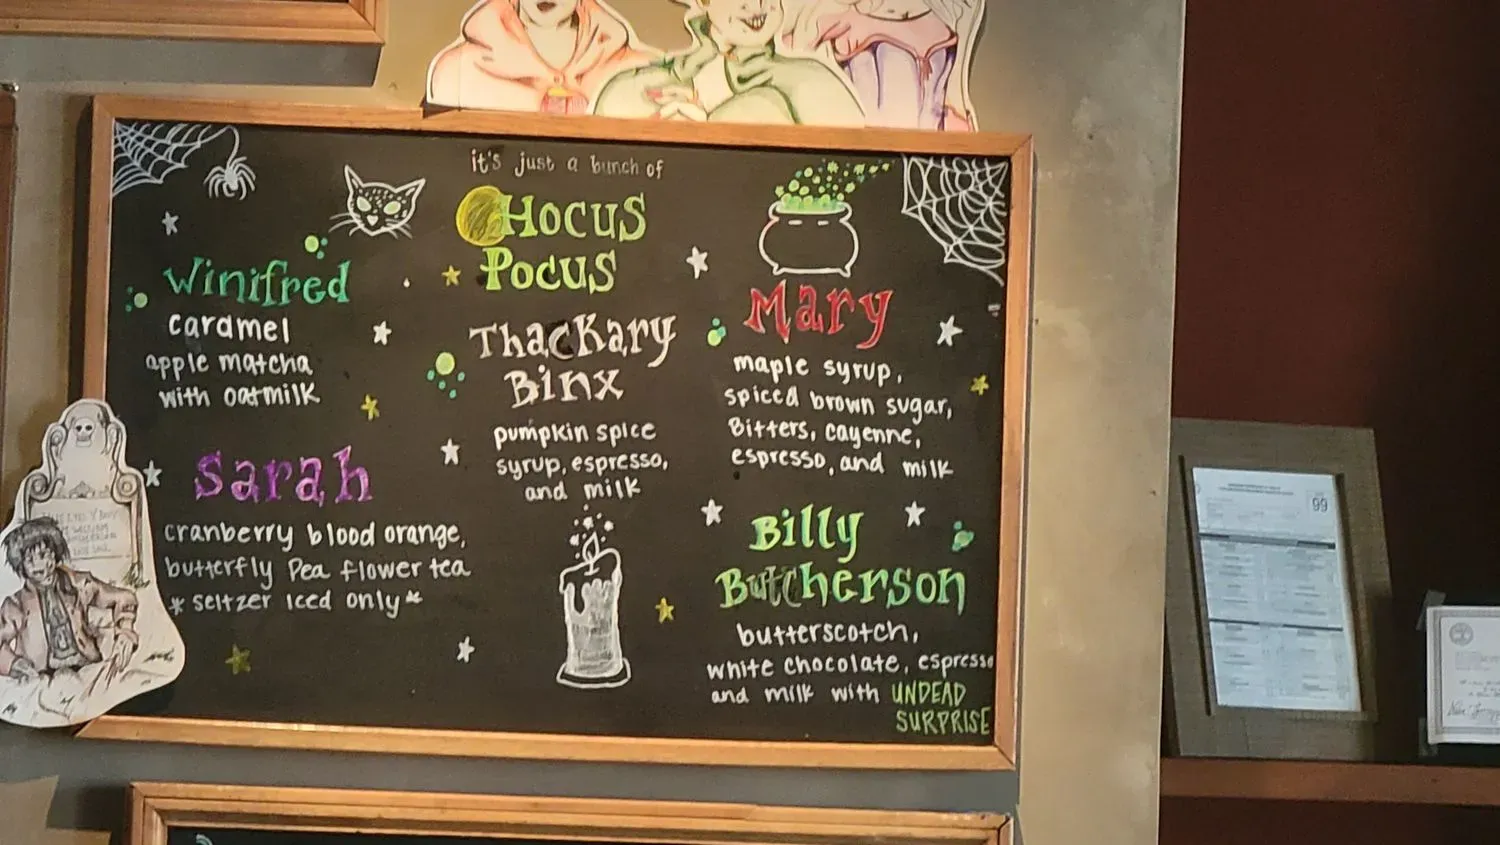 it's just a bunch of
HOCUS
POCUS
Winifred
caramel
apple matcha
with oatmilk
Sarah
cranberry blood orange,
butterfly Pea flower tea
*seltzer iced only*
ThacKary
Binx
pumpkin spice
syrup, espresso,
and milk
Mary
maple syrup,
spiced brown sugar,
Bitters, cayenne,
espresso, and milk
Billy
Butcherson
butterscotch,
white chocolate, espresso
and milk with UNDEAD
SURPRISE
99